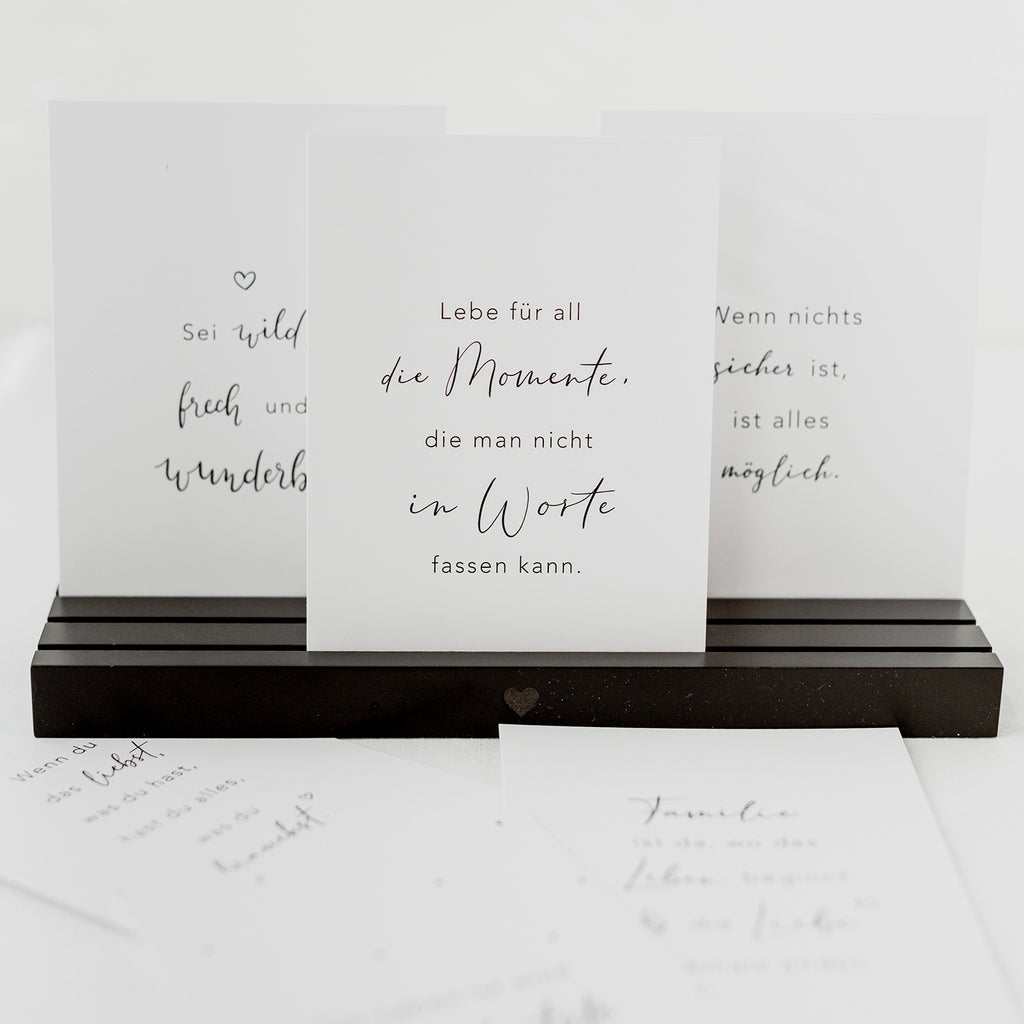 Sei wild
frech und
wunderb
Lebe für all
die Momente,
die man nicht
in Worte
fassen kann.
Wenn nichts
sicher ist,
ist alles
möglich.
Wenn du
das liebst,
was du hast,
hast du alles,
was du
brauchst.
Familie
ist da, wo das
Leben beginnt
& die Liebe